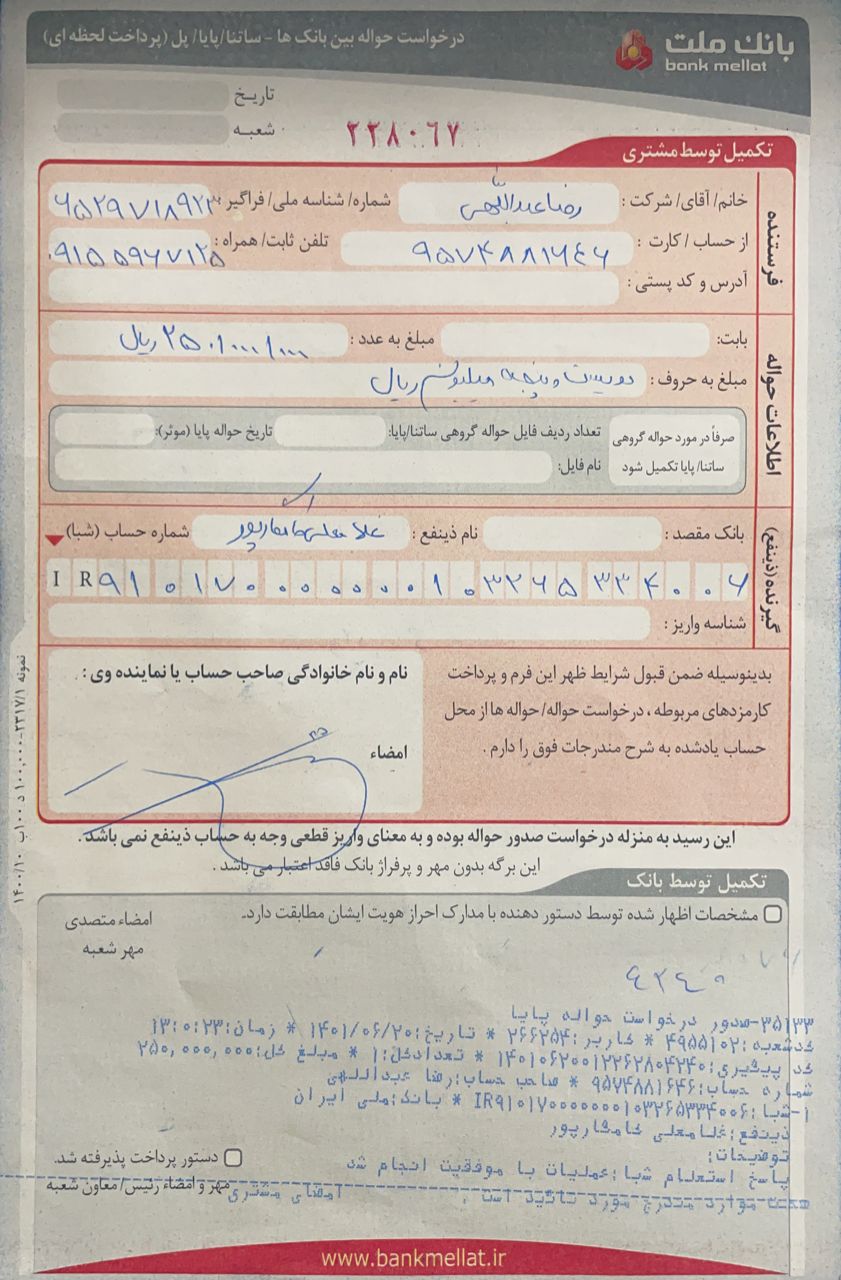 بانک ملت
bank mellat
درخواست حواله بین بانک ها - ساتنا/پایا/ پل (پرداخت لحظه ای)
تاریخ
شعبه
۲۲۸۰۶۷
تکمیل توسط مشتری
فرستنده
خانم/ آقای/ شرکت : رضا عبداللهی شماره/ شناسه ملی/ فراگیر :
از حساب / کارت : ۹۵۷۴۸۸۱۶۴۶ تلفن ثابت/ همراه : ۰۹۱۵۵۹۶۷۱۲۵
آدرس و کد پستی :
اطلاعات حواله
بابت: مبلغ به عدد : ۲۵۰/۰۰۰/۰۰۰ ریال
مبلغ به حروف : دویست و پنجاه میلیون ریال
صرفاً در مورد حواله گروهی ساتنا/ پایا تکمیل شود
تعداد ردیف فایل حواله گروهی ساتنا/پایا: تاریخ حواله پایا (موثر):
نام فایل:
گیرنده (ذینفع)
بانک مقصد : نام ذینفع : غلامعلی کامکارپور شماره حساب (شبا)
IR ۹۱ ۰۱۷۰ ۰۰۰۰ ۰۰۰۱ ۰۳۲۶ ۵۳۳۴ ۰۰۶
شناسه واریز :
بدینوسیله ضمن قبول شرایط ظهر این فرم و پرداخت
کارمزدهای مربوطه ، درخواست حواله/ حواله ها از محل
حساب یادشده به شرح مندرجات فوق را دارم .
نام و نام خانوادگی صاحب حساب یا نماینده وی :
امضاء
این رسید به منزله درخواست صدور حواله بوده و به معنای واریز قطعی وجه به حساب ذینفع نمی باشد .
این برگه بدون مهر و پرفراژ بانک فاقد اعتبار می باشد .
تکمیل توسط بانک
مشخصات اظهار شده توسط دستور دهنده با مدارک احراز هویت ایشان مطابقت دارد.
امضاء متصدی
مهر شعبه
۳۵۱۳۳-صدور درخواست حواله پایا
کدشعبه:۴۹۵۵۱۰۲ * کاربر:۲۶۶۲۵۴ * تاریخ:۱۴۰۱/۰۶/۲۰ * زمان:۱۳:۰:۲۳
کد پیگیری:۱۴۰۱۰۶۲۰۰۱۲۲۶۲۸۰۴۲۴۰ * تعدادکل:۱ * مبلغ کل:۲۵۰,۰۰۰,۰۰۰
شماره حساب:۹۵۷۴۸۸۱۶۴۶ * صاحب حساب:رضا عبداللهی
۱-شبا:IR۹۱۰۱۷۰۰۰۰۰۰۰۱۰۳۲۶۵۳۳۴۰۰۶ * بانک:ملی ایران
ذینفع:غلامعلی کامکارپور
توضیحات:
پاسخ استعلام شبا:عملیات با موفقیت انجام شد
صحت موارد مندرج مورد تائید است . امضای مشتری
دستور پرداخت پذیرفته شد.
مهر و امضاء رئیس/ معاون شعبه
www.bankmellat.ir
نمونه ۲۳۱۷/۱-۱۰۰,۰۰۰ د ۱۰۰ ب ۱۴۰۰/۱۰